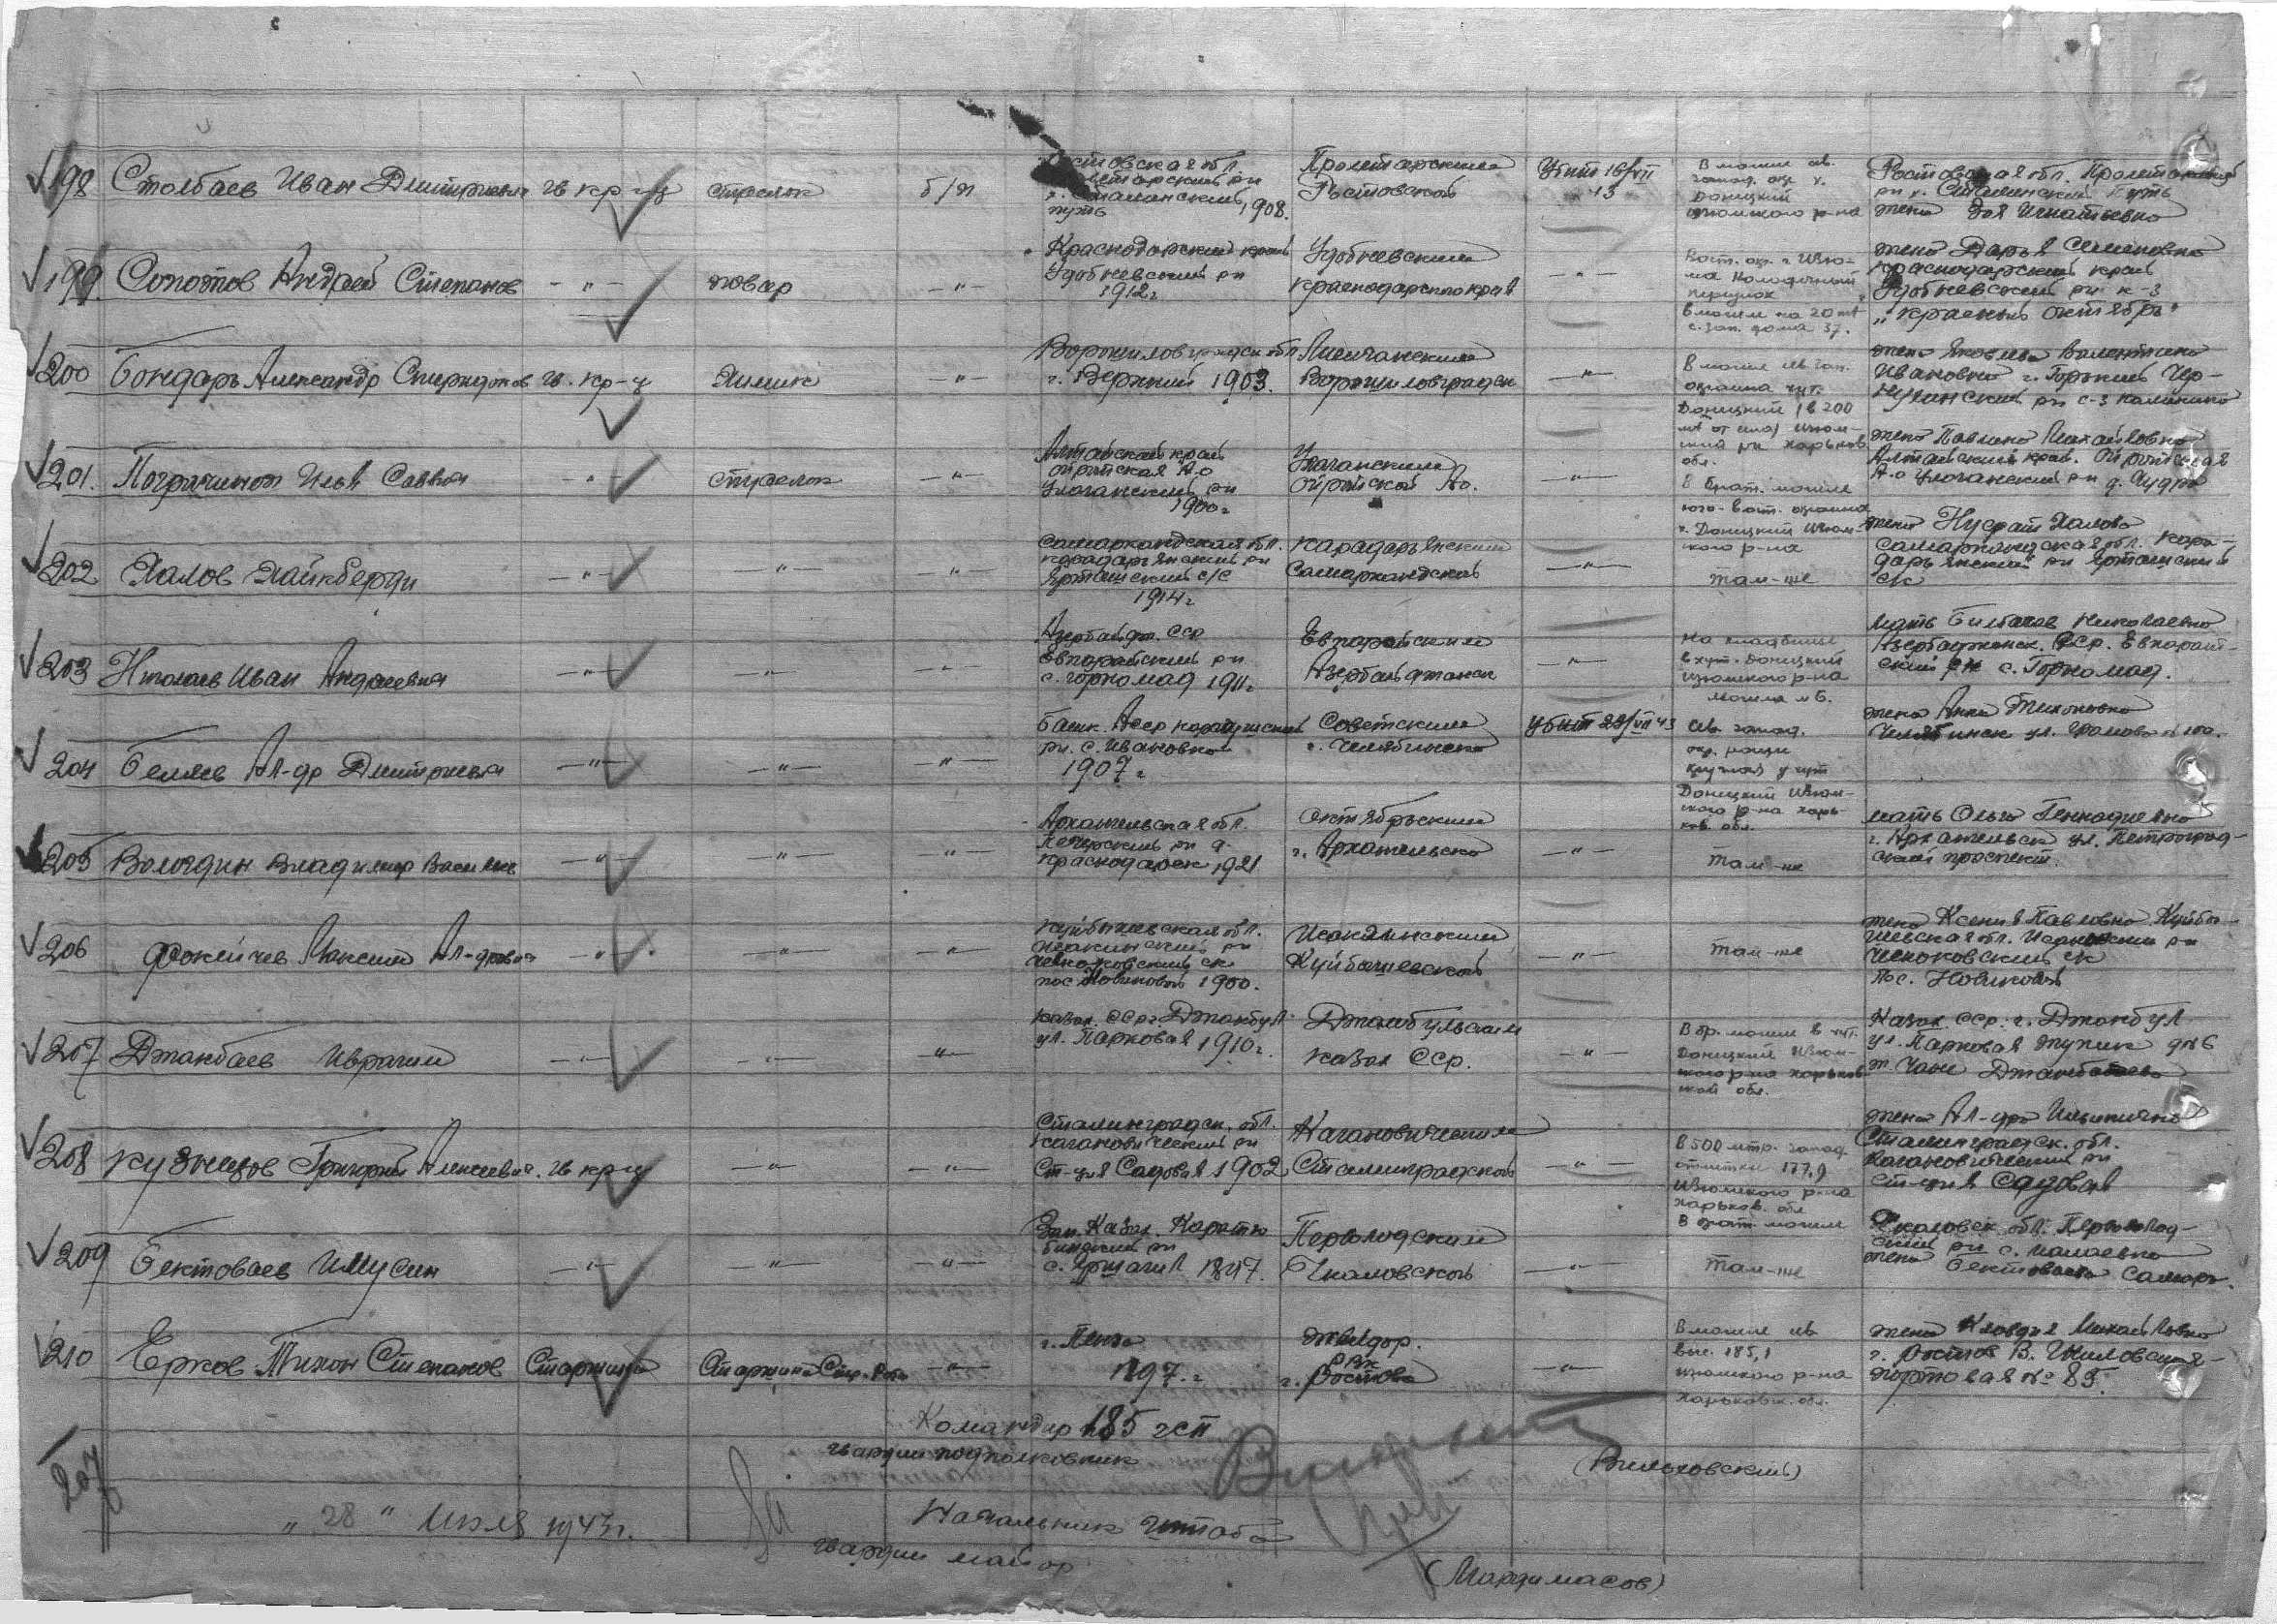 198 Столбаев Иван Дмитриевич гв кр-ц стрелок б/п
Ростовская обл.
х. Сталинский
путь 1908.
Пролетарским
Ростовской
Убит 16/VII
43
В могиле св.
запад. окр. х.
Донецкий
изюмского р-на
Ростовская обл. Пролетарский
рн х. Сталинский Путь
жена Зоя Игнатьевна
199. Андрей Степанов -"- повар -"-
Краснодарский край
Удобневский рн
1912г
Удобневским
Краснодарского края
-"-
Вост. окр. г. Изю-
ма Колодезный
переулок
в могиле на 20 мт
с. зап. дома 37.
жена Дарья Семеновна
Краснодарский край
Удобневский рн к-з
"Красный октябрь"
200 Бондарь Александр Спиридонов гв. кр-ц Химик -"-
Ворошиловградск обл
г. Верхний 1903.
Лисичанским
Ворошиловградск
-"-
В могиле св зап.
окраина хут.
Донецкий (в 200
мт от
рн харьков
обл.
жена Яковлева Валентина
Ивановна г. Горький Чер-
нухинский рн с-з Калинино
201. Илья Саввич -"- стрелок -"-
Алтайский край
ойротская А.о
Улаганский рн
1900г
Улаганским
Ойротской Ао.
-"-
В брат. могиле
юго-вост. окраина
х. Донецкий Изюм-
ского р-на
жена Павлина Михайловна
Алтайский край. Ойротская
А.о Улаганский рн д. Чудра
202 Халов Хайкберди -"- -"- -"-
Самаркандская обл.
Карадарьянский рн
Ярташский с/с
1914г
Карадарьянским
Самаркандской
-"-
Там-же
жена Нусрат Халова
Самаркандская обл. Кара-
дарьянский рн Ярташский
с/с
203 Николаев Иван Андреевич -"- -"- -"-
Азербайдж. ССР
Евпорайский рн
с. Горномад 1911г
Евпорайским
Азербайджанск
-"-
На кладбище
в хут. Донецкий
изюмского р-на
могила №6.
мать Николаевна
Азербаджанск. ССР. Евпорай-
ский рн с. Горномад.
204 Беляев Ал-др Дмитриевич -"- -"- -"-
Башк. Асср
рн. с. Ивановка
1907г
Советским
г. Челябинска
Убит 22/VII 43
св. запад.
окр. рощи
круглая у хут
Донецкий Изюм-
ского р-на харь-
ков. обл.
жена Анна Тихоновна
Челябинск ул. Громова №100.
205 Вологдин Владимир Василье -"- -"- -"-
Архангельская обл.
рн д.
1921
октябрьским
г. Архангельска
-"-
Там-же
мать Ольга Геннадиевна
г. Архангельск ул. Петроград-
ский проспект.
206 Фокейчев Максим Ал-дрович -"- -"- -"-
Куйбышевская обл.
Исаклинский рн
ск
пос Новиковый 1900.
Исаклинским
Куйбышевской
-"-
Там-же
жена Ксения Павловна Куйбы-
шевская обл. рн
ск
пос. Новиковый
207 Джанбаев Ибрагим -"- -"- -"-
Казах. ССР г. Джамбул
ул. Парковая 1910г.
Джамбульским
Казах ССР.
-"-
В бр. могиле в хут.
Донецкий Изюм-
ского р-на харьков-
ской обл.
Казах ССР. г. Джамбул
ул. Парковая тупик д№6
208 Кузнецов Григорий Алексеевич. гв кр-ц -"- -"-
Сталинградск. обл.
Кагановический рн
Ст-ция Садовая 1902
Кагановическим
Сталинградской
-"-
В 500 мтр. запад.
отметки 177,9
Изюмского р-на
харьков. обл
В брат. могиле
жена Ал-дра Ильинична
Сталинградск. обл.
Кагановический рн
Ст-ция Садовая
209 Бектоваев Имусин -"- -"- -"-
Зап. Казах. Каратю-
бинский рн
1897.
Переволодским
Чкаловской
-"-
Там-же
Чкаловск обл. Переволод-
ский рн с.
жена
210 Ерхов Тихон Степанов Старшина Старшина Стр. Роты -"-
г. Пенза
1897.г
желдор.
РВК
г. Ростова
-"-
В могиле св
выс. 185,1
изюмского р-на
харьковск. обл.
жена Клавдия Михайловна
г. Ростов В.
портовая № 83.
Командир 185 гсп
гвардии подполковник
(Вильховский)
207
"28" Июля 1943г.
Начальник Штаба
гвардии майор